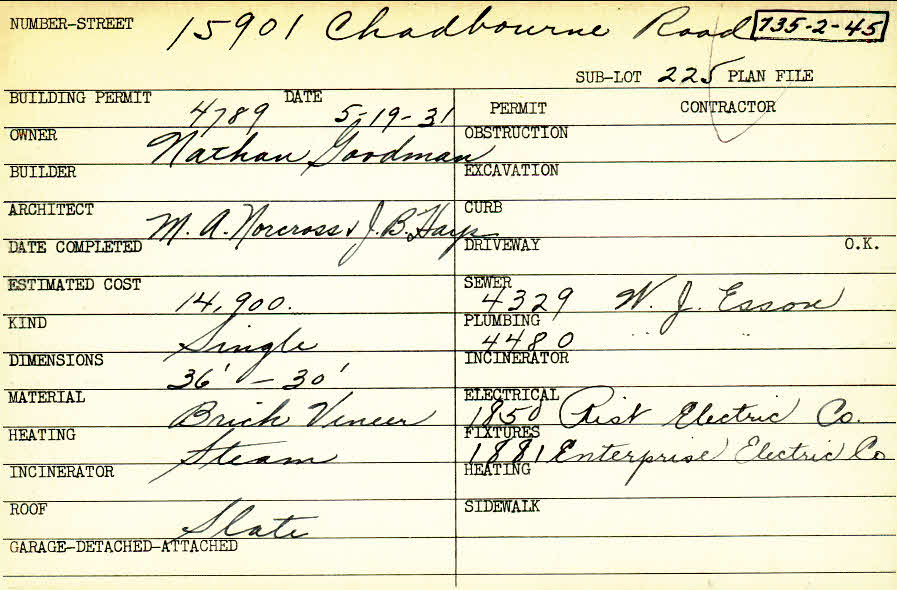 NUMBER-STREET 15901 Chadbourne Road 735-2-45
SUB-LOT 225 PLAN FILE
BUILDING PERMIT 4789 DATE 5-19-31
PERMIT CONTRACTOR
OWNER Nathan Goodman
OBSTRUCTION
BUILDER
EXCAVATION
ARCHITECT M. A. Norcross & J. B. Hays
CURB
DATE COMPLETED
DRIVEWAY O.K.
ESTIMATED COST 14,900.
SEWER 4329 W. J. Esson
KIND Single
PLUMBING 4480 " "
DIMENSIONS 36' - 30'
INCINERATOR
MATERIAL Brick Veneer
ELECTRICAL 1850 Rist Electric Co.
HEATING Steam
FIXTURES 1881 Enterprise Electric Co
INCINERATOR
HEATING
ROOF Slate
SIDEWALK
GARAGE-DETACHED-ATTACHED